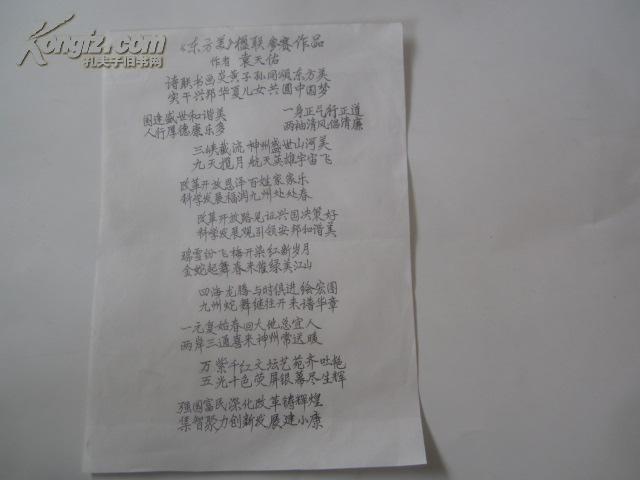 Kongfz.com
孔夫子旧书网
《东方美》楹联参赛作品
作者 袁天佑
诗联书画炎黄子孙同颂东方美
实干兴邦华夏儿女共圆中国梦
国逢盛世和谐美 一身正气行正道
人行厚德康乐多 两袖清风倡清廉
三峡截流神州盛世山河美
九天揽月航天英雄宇宙飞
改革开放恩泽百姓家家乐
科学发展福润九州处处春
改革开放路见证兴国决策好
科学发展观引领安邦和谐美
瑞雪纷飞梅开染红新岁月
金蛇起舞春来催绿美江山
四海龙腾与时俱进绘宏图
九州蛇舞继往开来谱华章
一元复始春回大地总宜人
两岸三通喜来神州常送暖
万紫千红文坛艺苑齐吐艳
五光十色荧屏银幕尽生辉
强国富民深化改革铸辉煌
集智聚力创新发展建小康